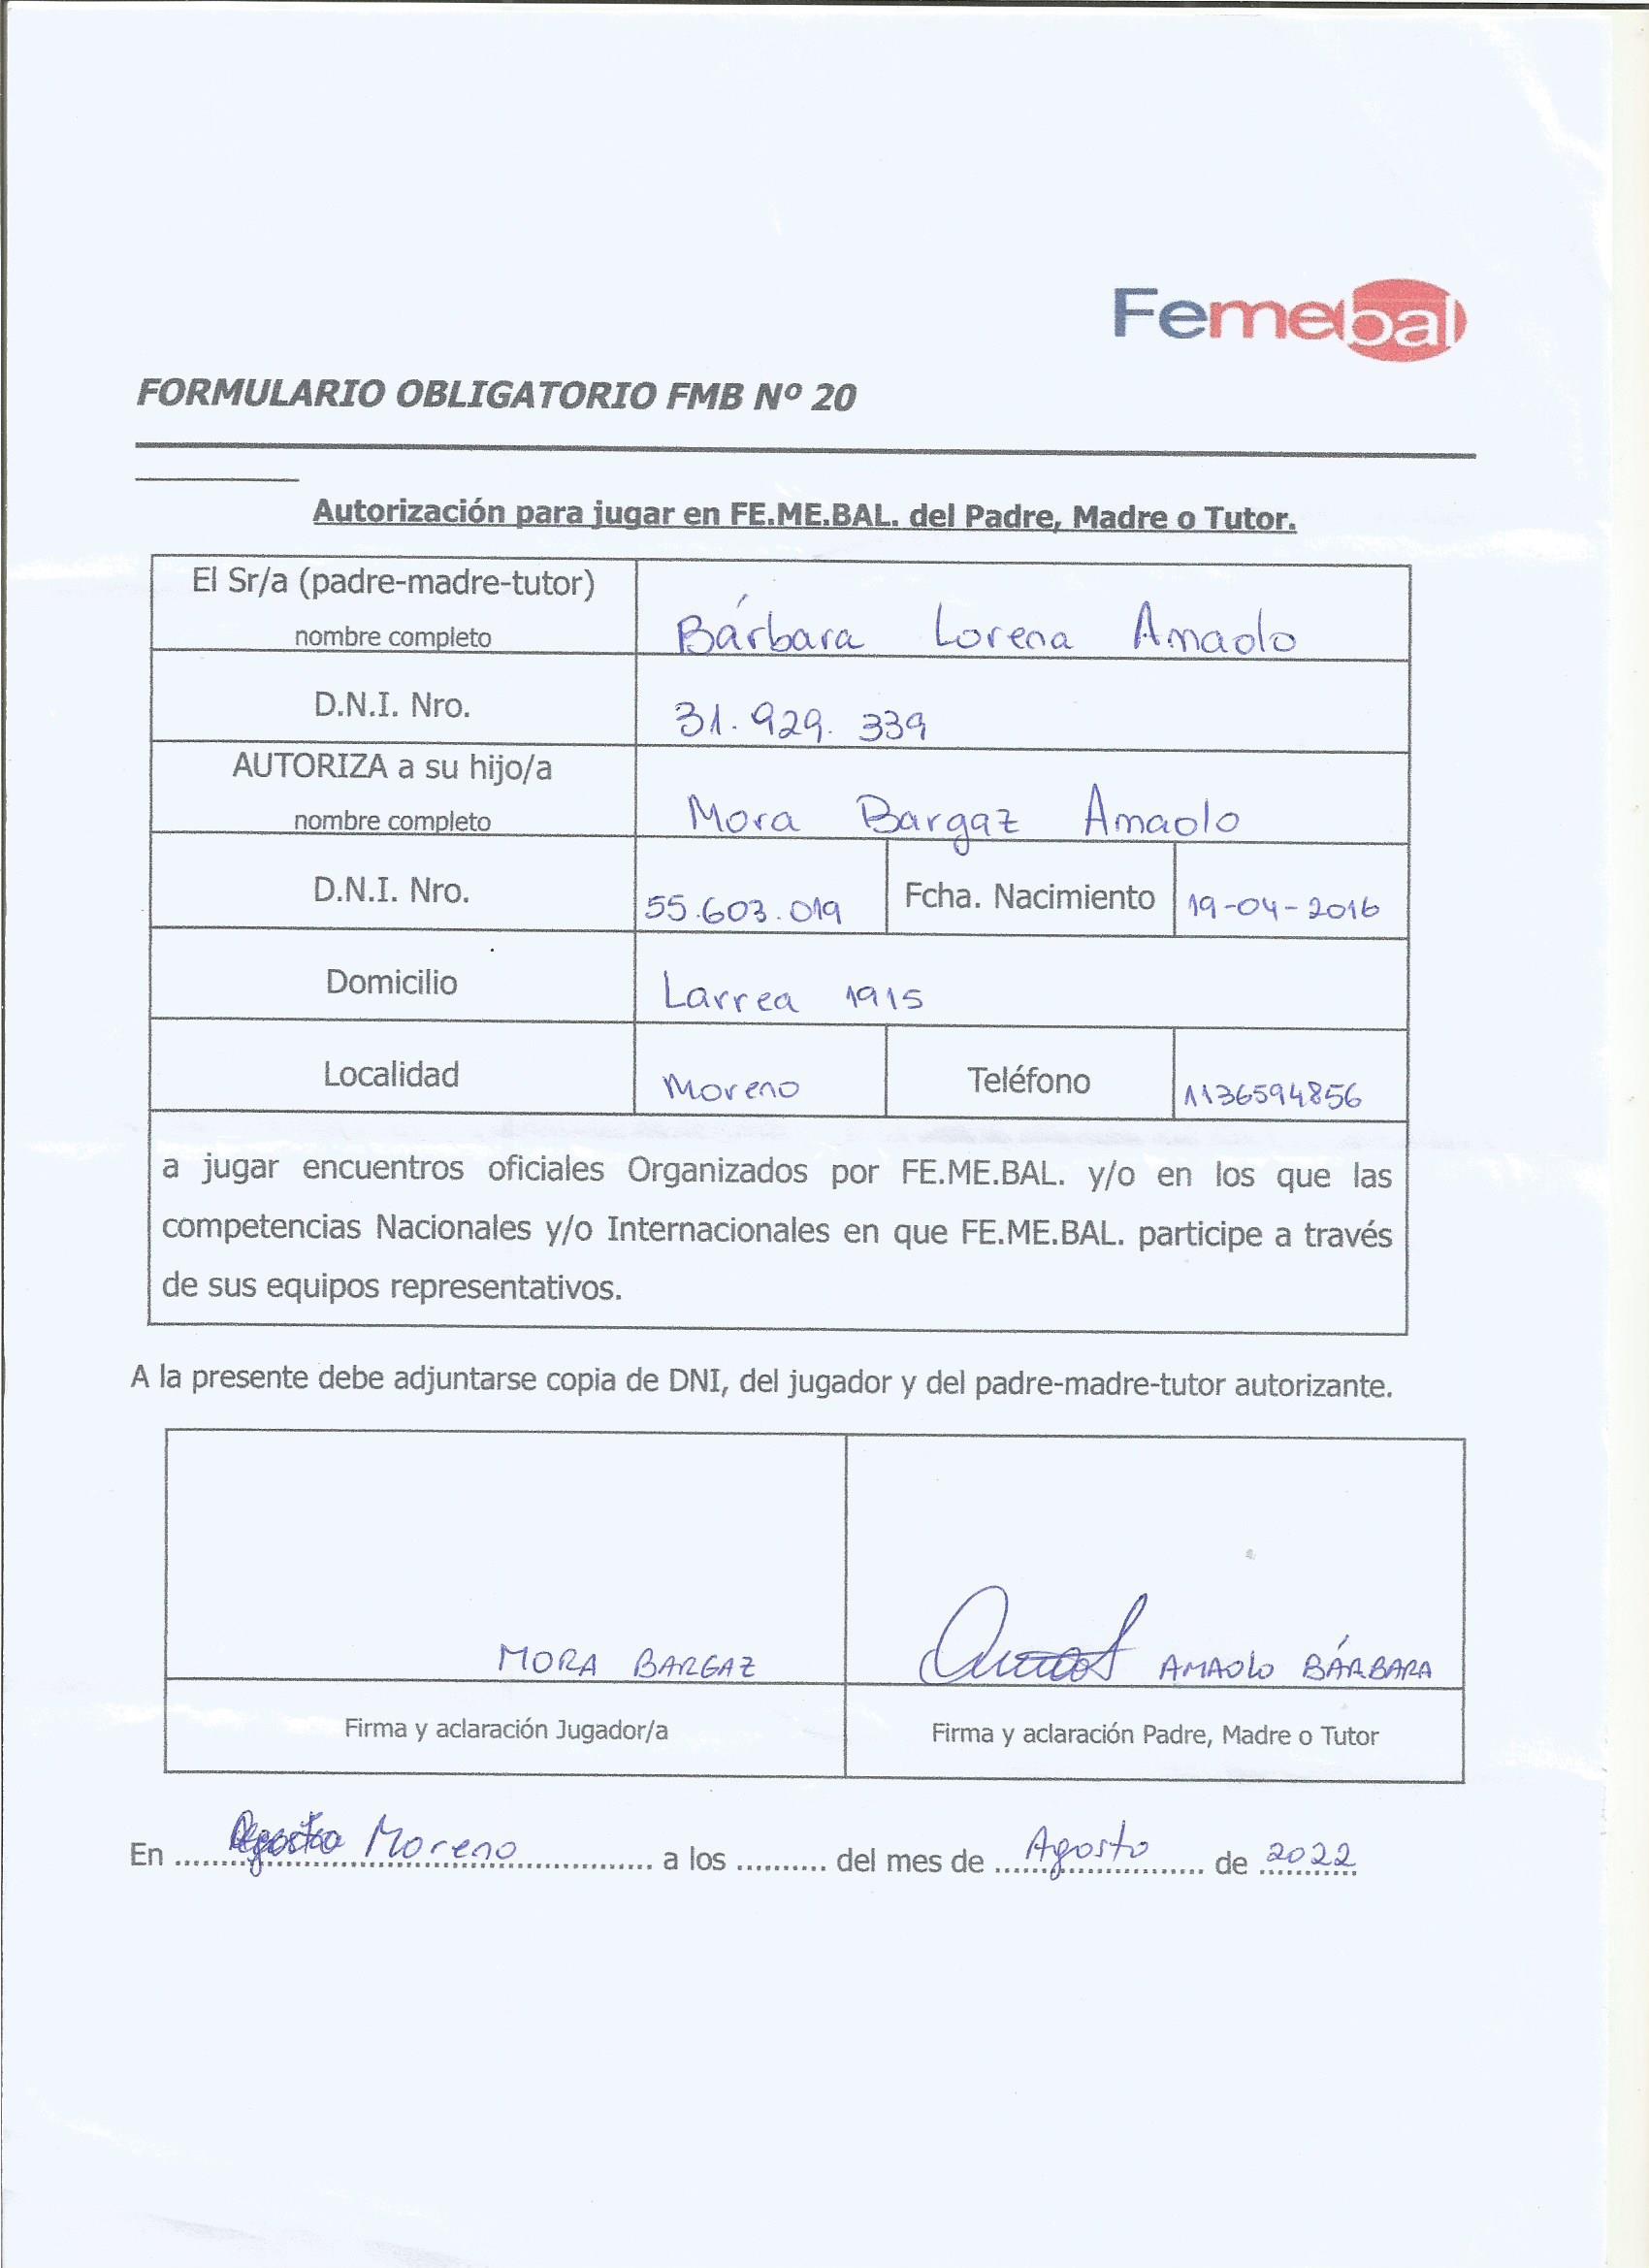 Femebal
FORMULARIO OBLIGATORIO FMB Nº 20
Autorización para jugar en FE.ME.BAL. del Padre, Madre o Tutor.
El Sr/a (padre-madre-tutor)
nombre completo
Bárbara Lorena Amaolo
D.N.I. Nro.
31.929.339
AUTORIZA a su hijo/a
nombre completo
Mora Bargaz Amaolo
D.N.I. Nro.
55.603.019
Fcha. Nacimiento
19-04-2016
Domicilio
Larrea 1915
Localidad
Moreno
Teléfono
1136594856
a jugar encuentros oficiales Organizados por FE.ME.BAL. y/o en los que las
competencias Nacionales y/o Internacionales en que FE.ME.BAL. participe a través
de sus equipos representativos.
A la presente debe adjuntarse copia de DNI, del jugador y del padre-madre-tutor autorizante.
MORA BARGAZ
AMAOLO BÁRBARA
Firma y aclaración Jugador/a
Firma y aclaración Padre, Madre o Tutor
En Moreno a los .......... del mes de Agosto de 2022